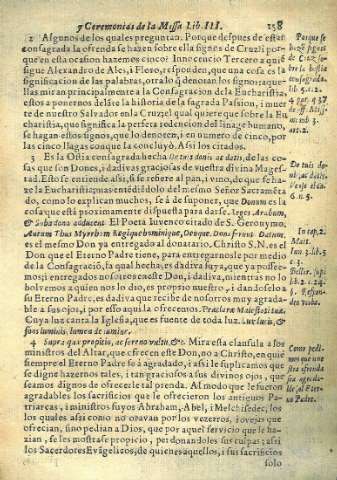 y Ceremonias de la Missa Lib. III. 258
2 Algunos de los quales preguntan. Porque despues de estar
consagrada la ofrenda se hazen sobre ella signos de Cruz? i por-
que en esta ocasion hazemos cinco? Innocencio Tercero a quien
sigue Alexandro de Ales, i Floro, responden, que una cosa es la
significacion de las palabras, otra lo que denotan los signos: aque-
llas miran principalmente a la Consagracion de la Eucharistia,
estos a ponernos delãte la historia de la sagrada Passion, i muer-
te de nuestro Salvador en la Cruz: el qual quiere que sobre la Eu-
charistia, que significa la perfeta redencion del linage humano,
se hagan estos signos, que lo denoten, i en numero de cinco, por
las cinco llagas con que la concluyò. Assi los citados.
3 Es la Ostia consagrada hecha De tuis donis ac datis, de las co-
sas que son Dones, i dadivas graciosas de vuestra divina Mages-
tad. Esto se entiende assi, si se refiere al pan, i vino, de que se ha-
ze la Eucharistia; mas entẽdiẽdolo del mesmo Señor Sacramẽta-
do, como lo explican muchos, se à de suponer, que Donum es la
cosa que està proximamente dispuesta para darse. Reges Arabum,
& Saba dona adducent. El Poeta Iuvenco citado de S. Geronymo,
Aurum Thus Myrrham Regique hominique, Deoque. Dona ferunt. Datum
es el mesmo Don ya entregado al donatario. Christo S. N. es el
Don que el Eterno Padre tiene, para entregarnosle por medio
de la Consagraciõ, la qual hecha, es dadiva suya, que ya possee-
mos; i entregados nosotros en este Don, i dadiva, mientras no lo
bolvemos a quien nos lo diò, es proprio nuestro, i dandoselo a
su Eterno Padre, es dadiva que recibe de nosotros muy agrada-
ble a sus ojos, i por esso aqui la ofrecemos. Præclaræ Maiestati tuæ.
Cuya luz canta la Iglesia, que es fuente de toda luz. Lux lucis, &
fons luminis, lumen de lumine.
4 Supra quæ propitio, ac sereno vultu, &c. Mira esta clausula a los
ministros del Altar, que ofrecen este Don, no a Christo, en quien
siempre el Eterno Padre se à agradado, i assi le suplicamos que
se digne hazernos tales, i tan graciosos a sus divinos ojos, que
seamos dignos de ofrecerle tal prenda. Al modo que le fueron
agradables los sacrificios que le ofrecieron los antiguos Pa-
triarcas, i ministros suyos Abraham, Abel, i Melchisedec, los
los quales assi como no oravan por los vezeros, i ovejas que
ofrecian, sino pedian a Dios, que por aquel servicio que le ha-
zian, se les mostrase propicio, perdonandoles sus culpas; assi
los Sacerdotes Evãgelicos, de quienes aquellos, i sus sacrificios
solo
Porque se
hazẽ signos
de Cruz so-
bre la hostia
consagrada.
De tuis do-
nis, ac datis.
Como pedi-
mos que una
tra ofrenda
sea agrada-
ble al Eter-
no Padre.